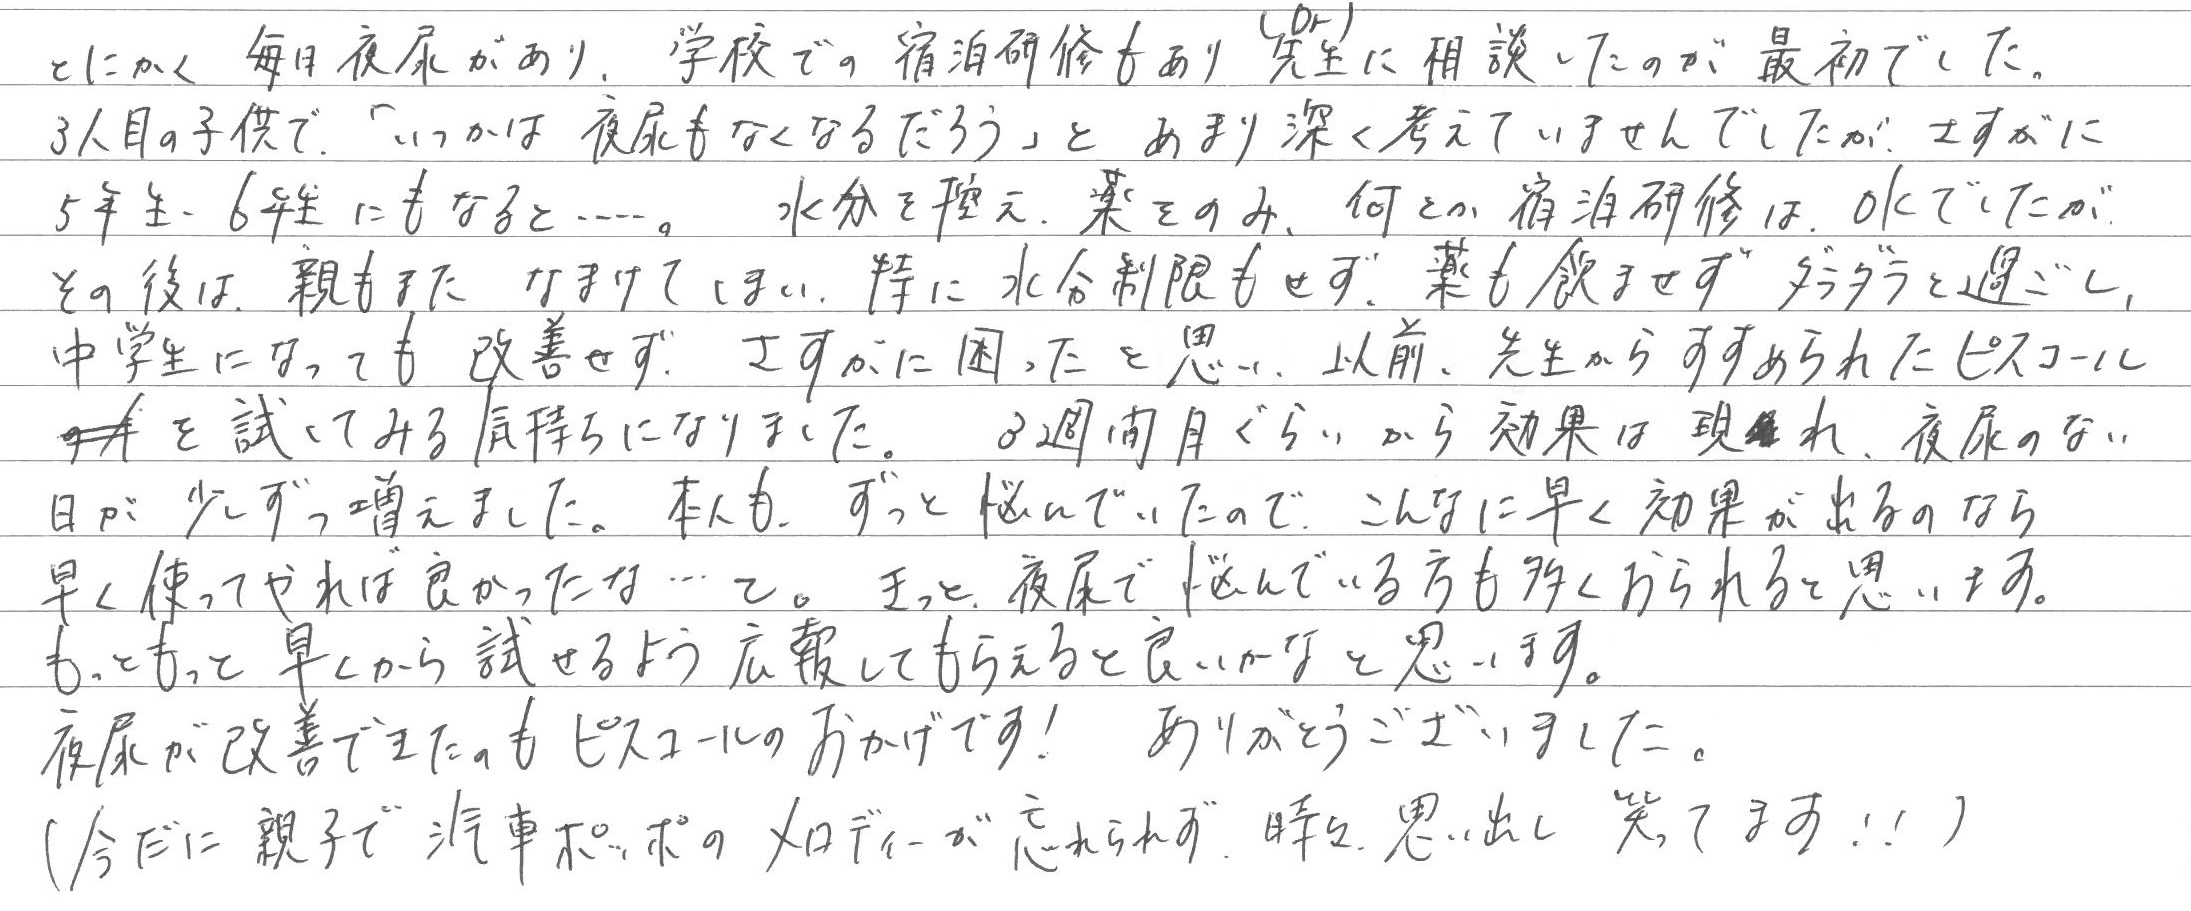 とにかく 毎日夜尿があり、学校での宿泊研修もあり先生(Dr)に相談したのが最初でした。
3人目の子供で、「いつかは夜尿もなくなるだろう」と あまり深く考えていませんでしたが、さすがに
5年生、6年生にもなると……。 水分を控え、薬をのみ、何とか宿泊研修は、OKでしたが、
その後は、親もまた なまけてしまい、特に水分制限もせず、薬も飲ませず ダラダラと過ごし、
中学生になっても改善せず、さすがに困ったと思い、以前、先生からすすめられたピスコール
を試してみる気持ちになりました。 3週間目ぐらいから効果は現れ、夜尿のない
日が少しずつ増えました。本人も、ずっと悩んでいたので、こんなに早く効果が出るのなら
早く使ってやれば良かったな…と。 きっと、夜尿で悩んでいる方も多くおられると思います。
もっともっと早くから試せるよう広報してもらえると良いかなと思います。
夜尿が改善できたのもピスコールのおかげです! ありがとうございました。
(今だに親子で 汽車ポッポのメロディーが忘れられず、時々、思い出し 笑ってます!!)